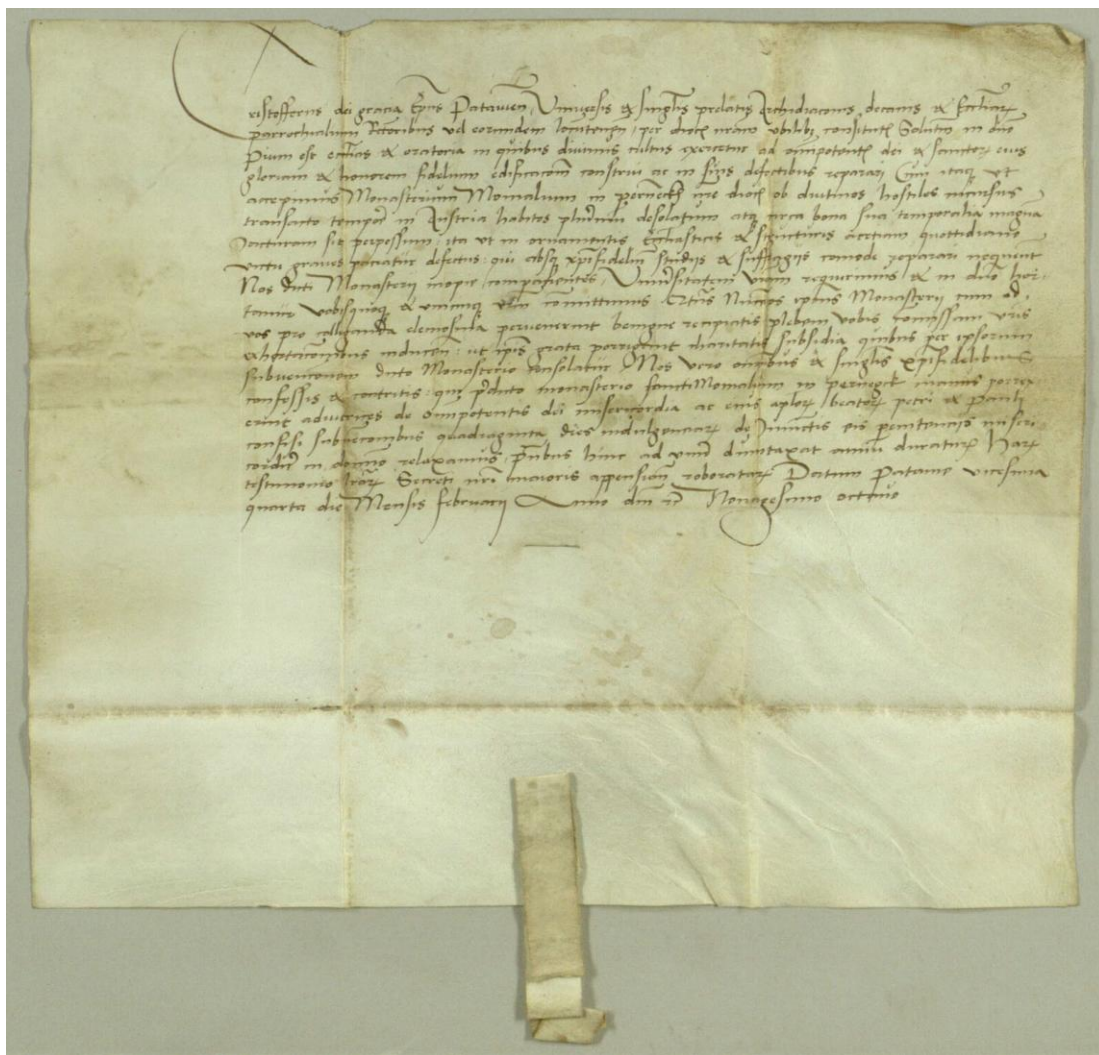 Cristofferus dei gracia Ep̄us Patavien̄ Universis & singlis prelatis Archidiaconis decanis & Eccliarꝝ
parrochialium Rectoribus vel eorundem locatenen̄ per dioc̄ nr̄am ubilibꝫ constitutis Salutem in dn̄o
Pium est ecclias & oratoria in quibus divinus cultus exercetur ad omnipotentis dei & sanctorꝝ eius
gloriam & honorem fidelium edificacōem construi ac in suis defectibus reparari Cum itaqꝫ ut
accepimus Monasterium Monialium in perneckh nr̄e dioc̄ ob diutinos hostiles incursus
transacto tempore in Austria habitos plurimum desolatum atqꝫ circa bona sua temporalia magnā
iacturam sit perpessum: ita ut in ornamentis Eccliasticis & structuris ac etiam quottidiano
victu graves paciatur defectus: qui absqꝫ xp̄ifidelium studiis & suffragiis comode reparari nequeunt
Nos dicti Monasterii inopie compacientes, Universitatem vr̄am requirimus & in dn̄o hor-
tamur vobisqꝫ & unicuiqꝫ vr̄m comittimus Certus Nuncios ip̄ius Monasterii cum ad
vos pro colligenda elemosina pervenerint benigne recipiatis plebem vobis comissam vr̄is
exhortacōnibus inducen̄: ut ip̄is grata porrigant charitatis subsidia quibus per ipsorum
subvencōnem dicto Monasterio consolatur Nos vero omnibus & singlis xp̄ifidelibus
confessis & contritis: qui p̄dicto monasterio sanctiMonialium in pernegck manus porrex-
erint adiutrices de omnipotentis dei misericordia ac eius ap̄lorꝝ beatorꝝ petri & Pauli
confisi subvencōnibus quadraginta dies indulgenciarꝝ de iniunctis eis penitenciis miseri-
corditer in domino relaxamus, p̄ntibus hinc ad unū dumtaxat annū duraturꝝ Harꝝ
testimonio lrarꝝ Secreti nr̄i maioris appensiōn roboratarꝝ Datum Patavie vicesima
quarta die Mensis februarii Anno dn̄i &c Nonagesimo octavo